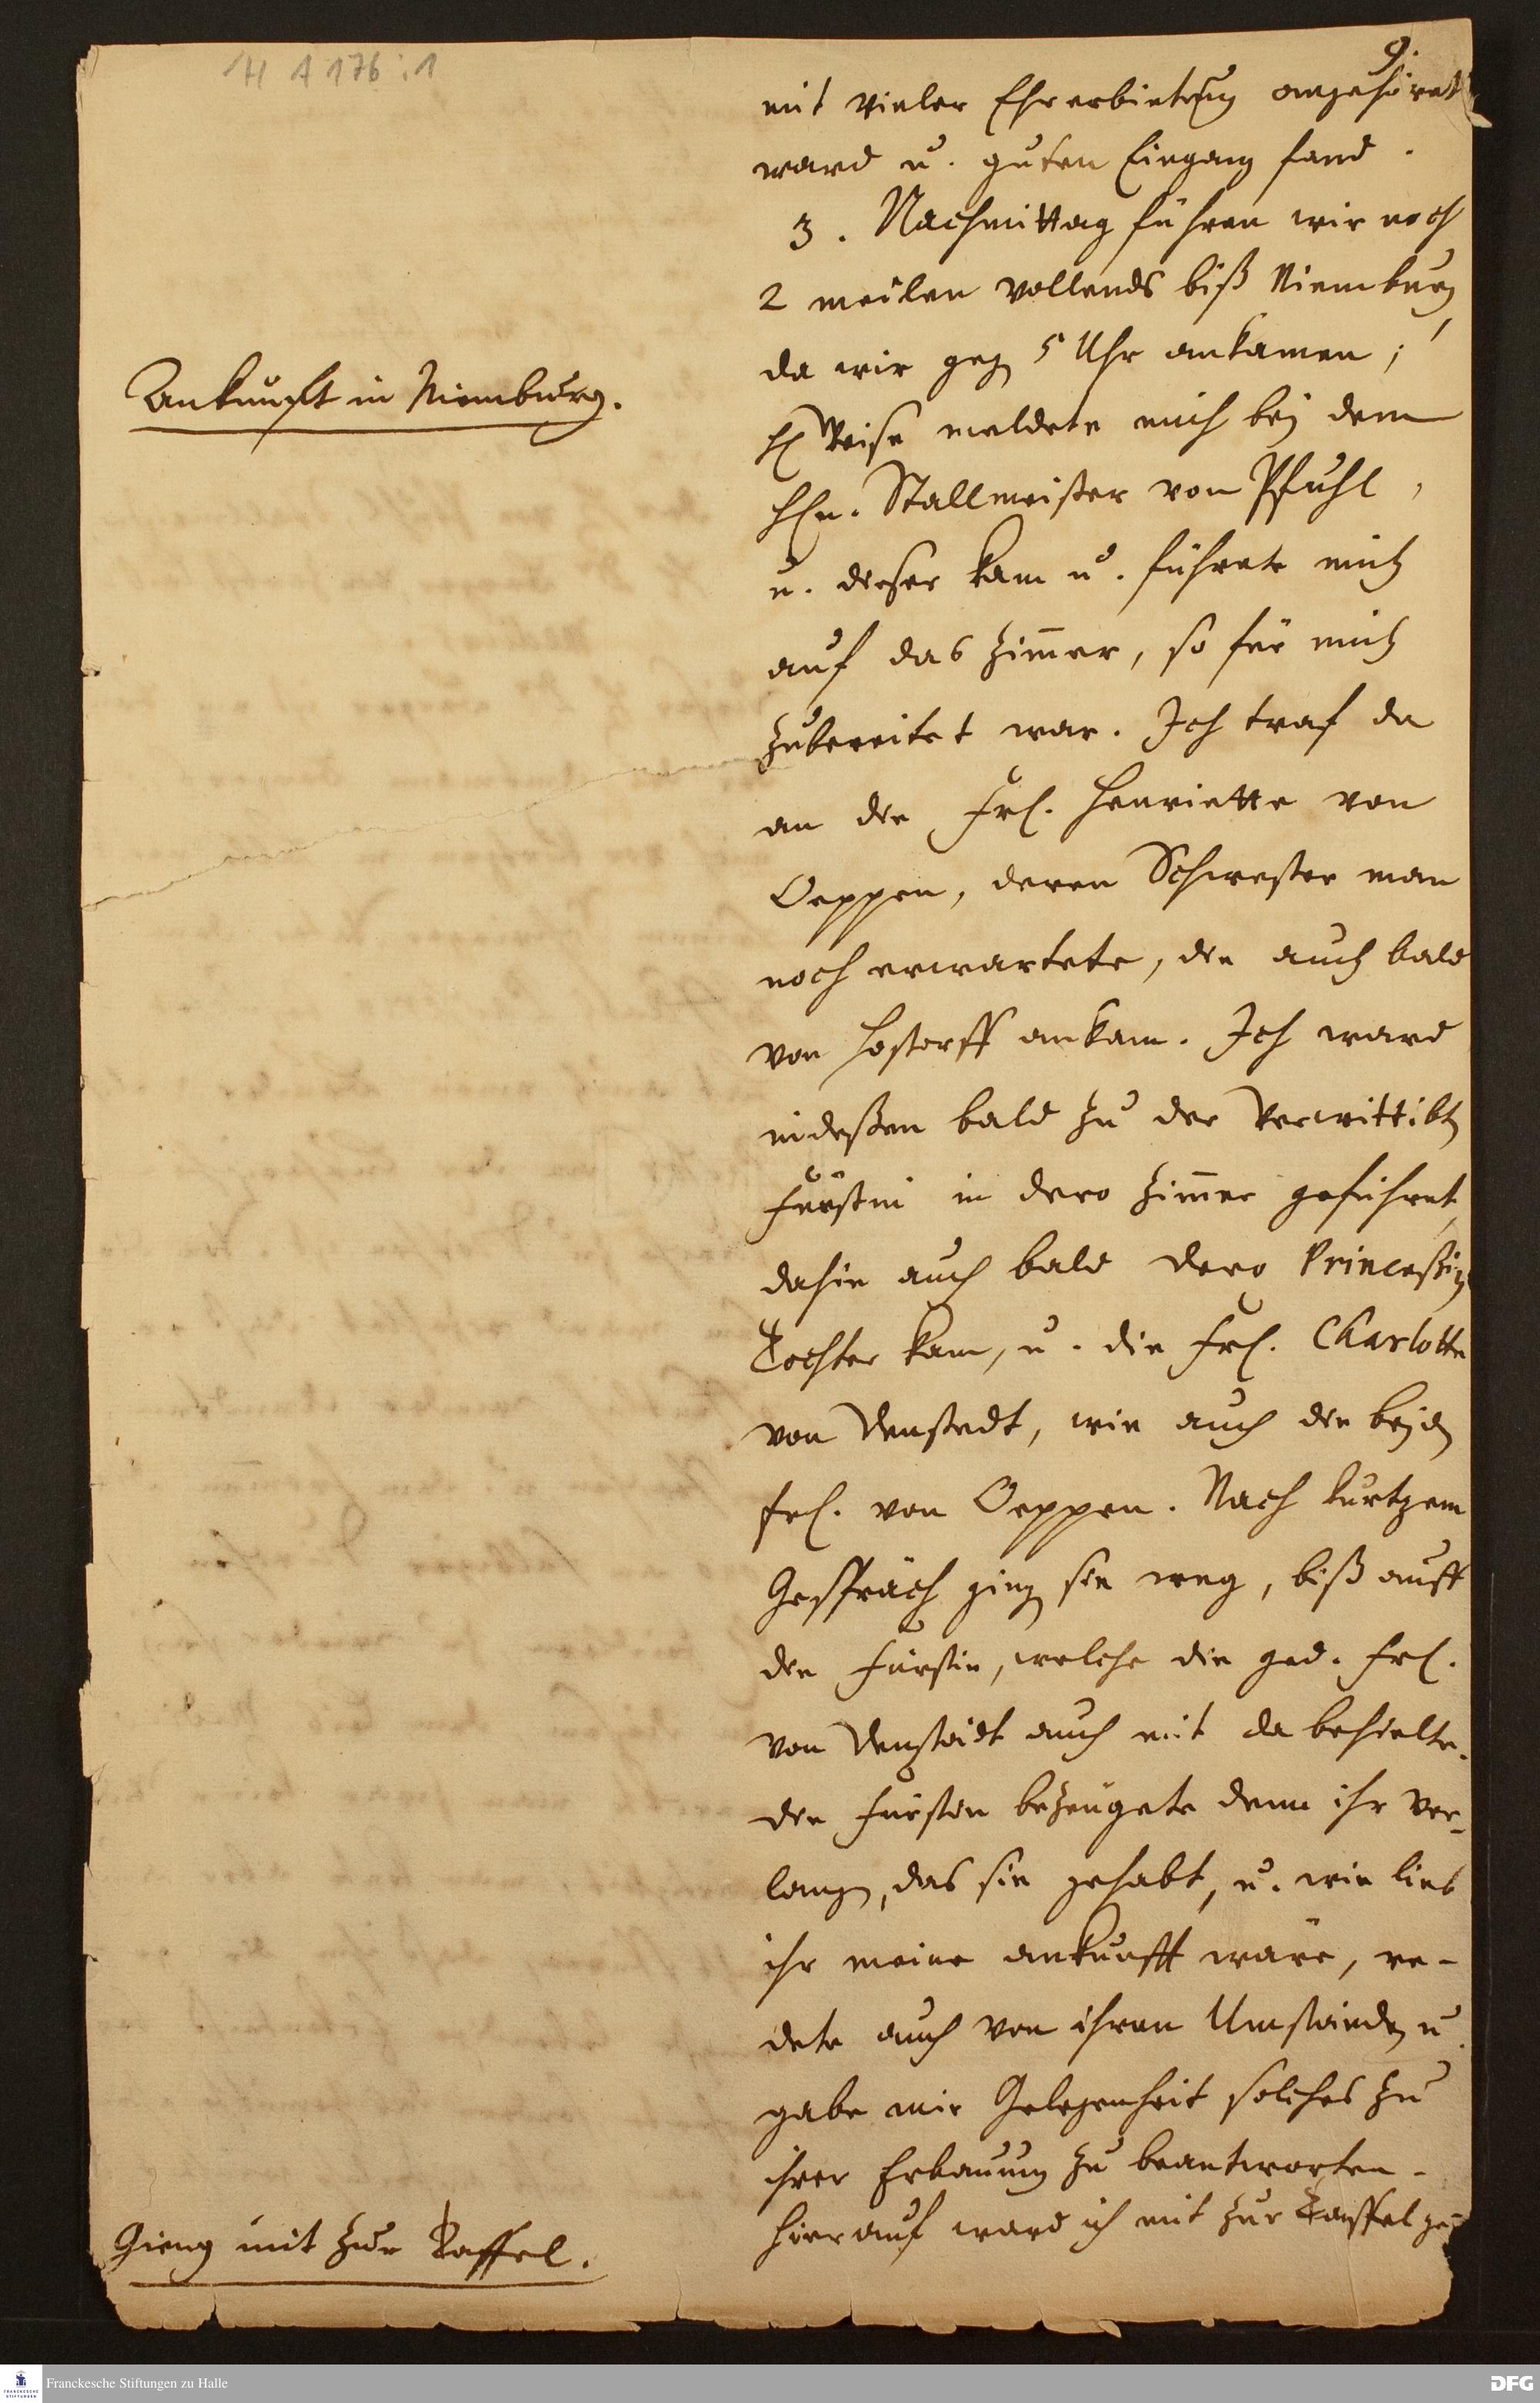 H A 176 : 1
9.
mit vieler Ehrerbietung angehöret
ward u. guten Eingang fand.
3. Nachmittag fuhren wir noch
2 meilen vollends biß Niemburg,
da wir geg 5 Uhr ankamen;
Ankunfft in Niemburg.
H Weise meldete mich bey dem
HEn. Stallmeister von Pfuhl,
u. dieser kam u. führete mich
auf das Zimer, so für mich
zubereitet war. Ich traf da
an die Frl. Henriette von
Oeppen, deren Schwester man
noch erwartete, die auch bald
von ankam. Ich ward
indeßen bald zu der Verwittibten
Fürstin in dero Zimer geführet,
dahin auch bald dero Princeßin
Tochter kam, u. die Frl. Charlotte
von Denstedt, wie auch die beyden
Frl. von Oeppen. Nach kurtzem
Gespräch gingen sie weg, biß auff
die Fürstin, welche die ged. Frl.
von Denstädt auch mit da behielte.
die Fürstin bezeugete denn ihr Ver-
langen, das sie gehabt, u. wie lieb
ihr meine ankunfft wäre, re-
dete auch von ihren Umständen u.
gabe mir Gelegenheit solches zu
ihrer Erbauung zu beantworten.
Hierauf ward ich mit zur Taffel ge-
Gieng mit zur Taffel.
Franckesche Stiftungen zu Halle
DFG